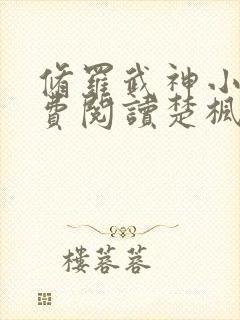 脩羅武神小
費閱讀楚楓
樓蓉蓉